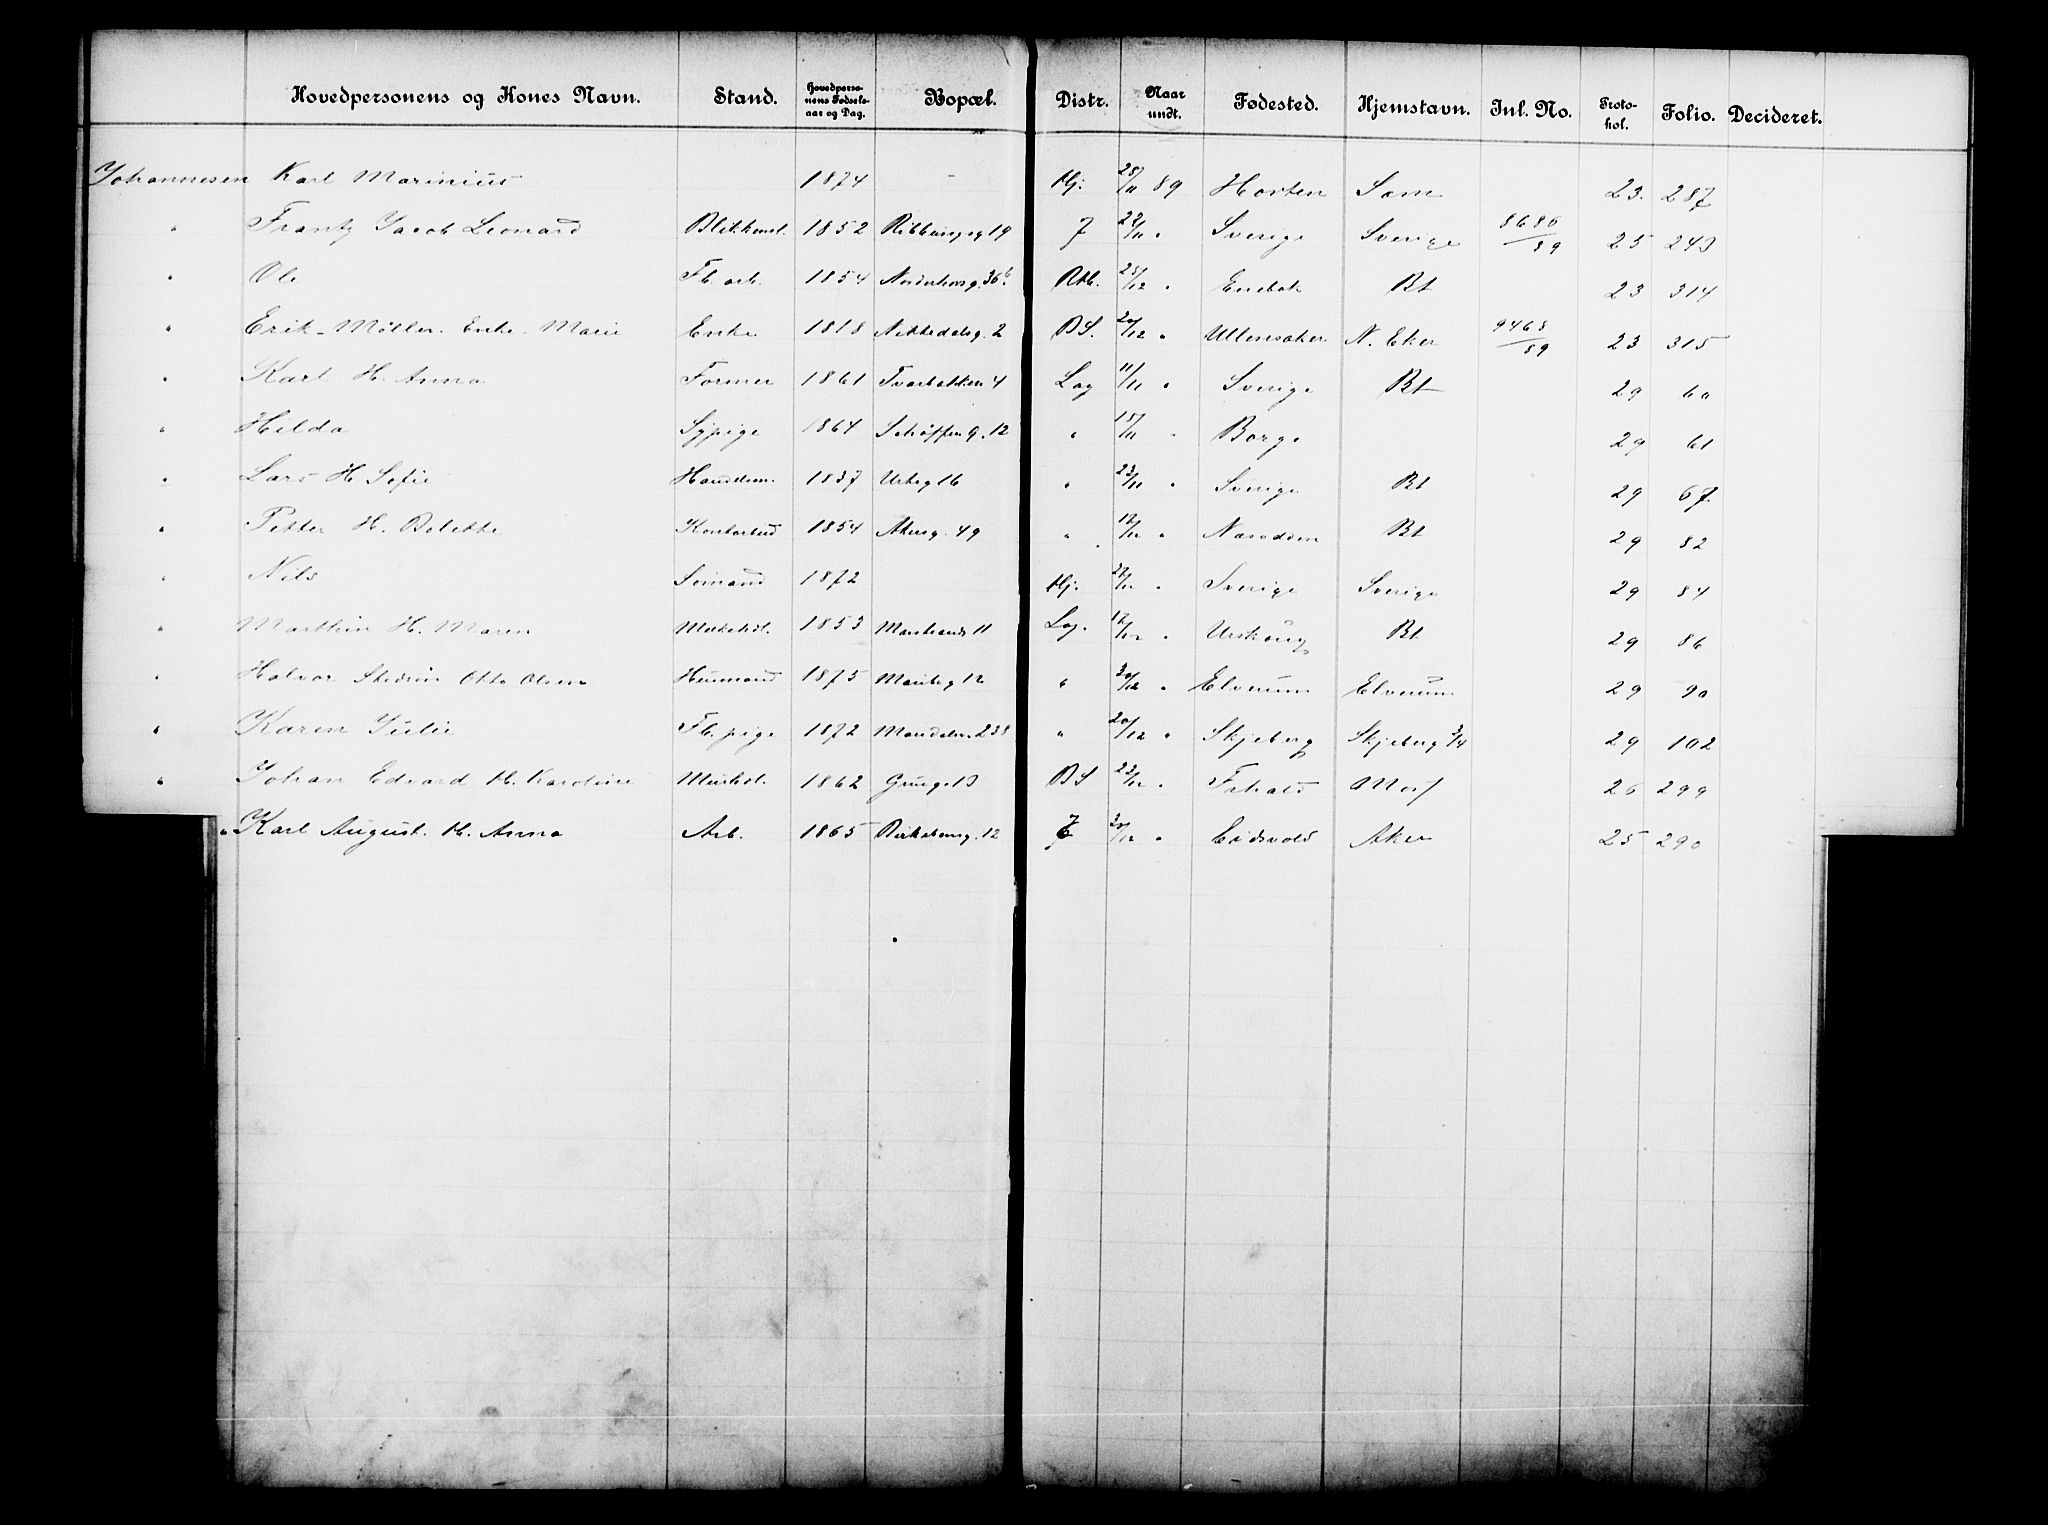 Hovedpersonens og Kones Navn. Stand. Hovedperso-nens Fødsels-aar og Dag. Bopæl. Distr. Naar undt. Fødested. Hjemstavn. Inl. No. Proto-kol. Folio. Decideret.
Johannesen Karl Marinius 1874 - Hj. 28/11 89 Horten Sam 23. 287
" Frantz Jacob Leonard 1852 Ribbungsg 19 7 22/11 " Sverige Sverige 8686/89 25 243
" Ole Fb. arb. 1854 Nordahlsg. 36 Rtb. 28/12 " Enebak Bt 23 314
" Erik Møller Enke Marie Enke 1818 Nittedalsg. 2 BS. 20/12 " Ullensaker N. Eker 9468/89 23 315
" Karl H. Anna Former 1861 Tværbakken 4 Lag 11/11 " Sverige Bt 29 60
" Hilda Sypige 1864 Schøffen g. 12 " 15/11 " Borge 29 61
" Lars H Sofie Handelsm. 1837 Urteg 16 " 23/11 " Sverige Bt 29 67
" Petter H. Bolette Kontorbud 1854 Akersg. 49 " 12/12 " Næsodden Bt 29 82
" Nils Sømand 1872 Hj. 22/12 " Sverige Sverige 29 84
" Marthin H. Maren 1853 Marstrands 11 Lag. 12/12 " Urskoug Bt 29 86
" Halvor Otto Olsen 1875 Maribog 12 " 30/12 " Elverum Elverum 29 90
" Karen Julie Fb. pige 1872 Maridalsv. 238 " 20/12 " Skjeberg Skjeberg 3/4 29 102
" Johan Edvard H. Karoline 1862 BS 23/12 " Fr.hald Mos 26 299
" Karl August. H. Anna Arb. 1865 Birkebeing. 12 7 /12 " Eidsvold Aker 25 290